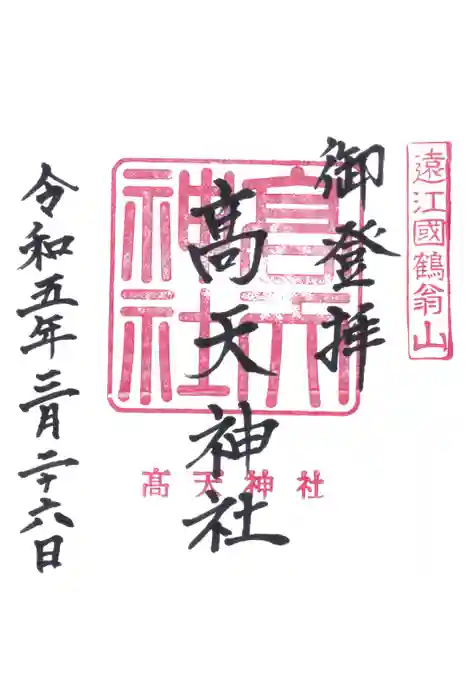 遠江國鶴翁山
御登拝
髙天神社
髙天神社
髙天神社
令和五年三月二十六日